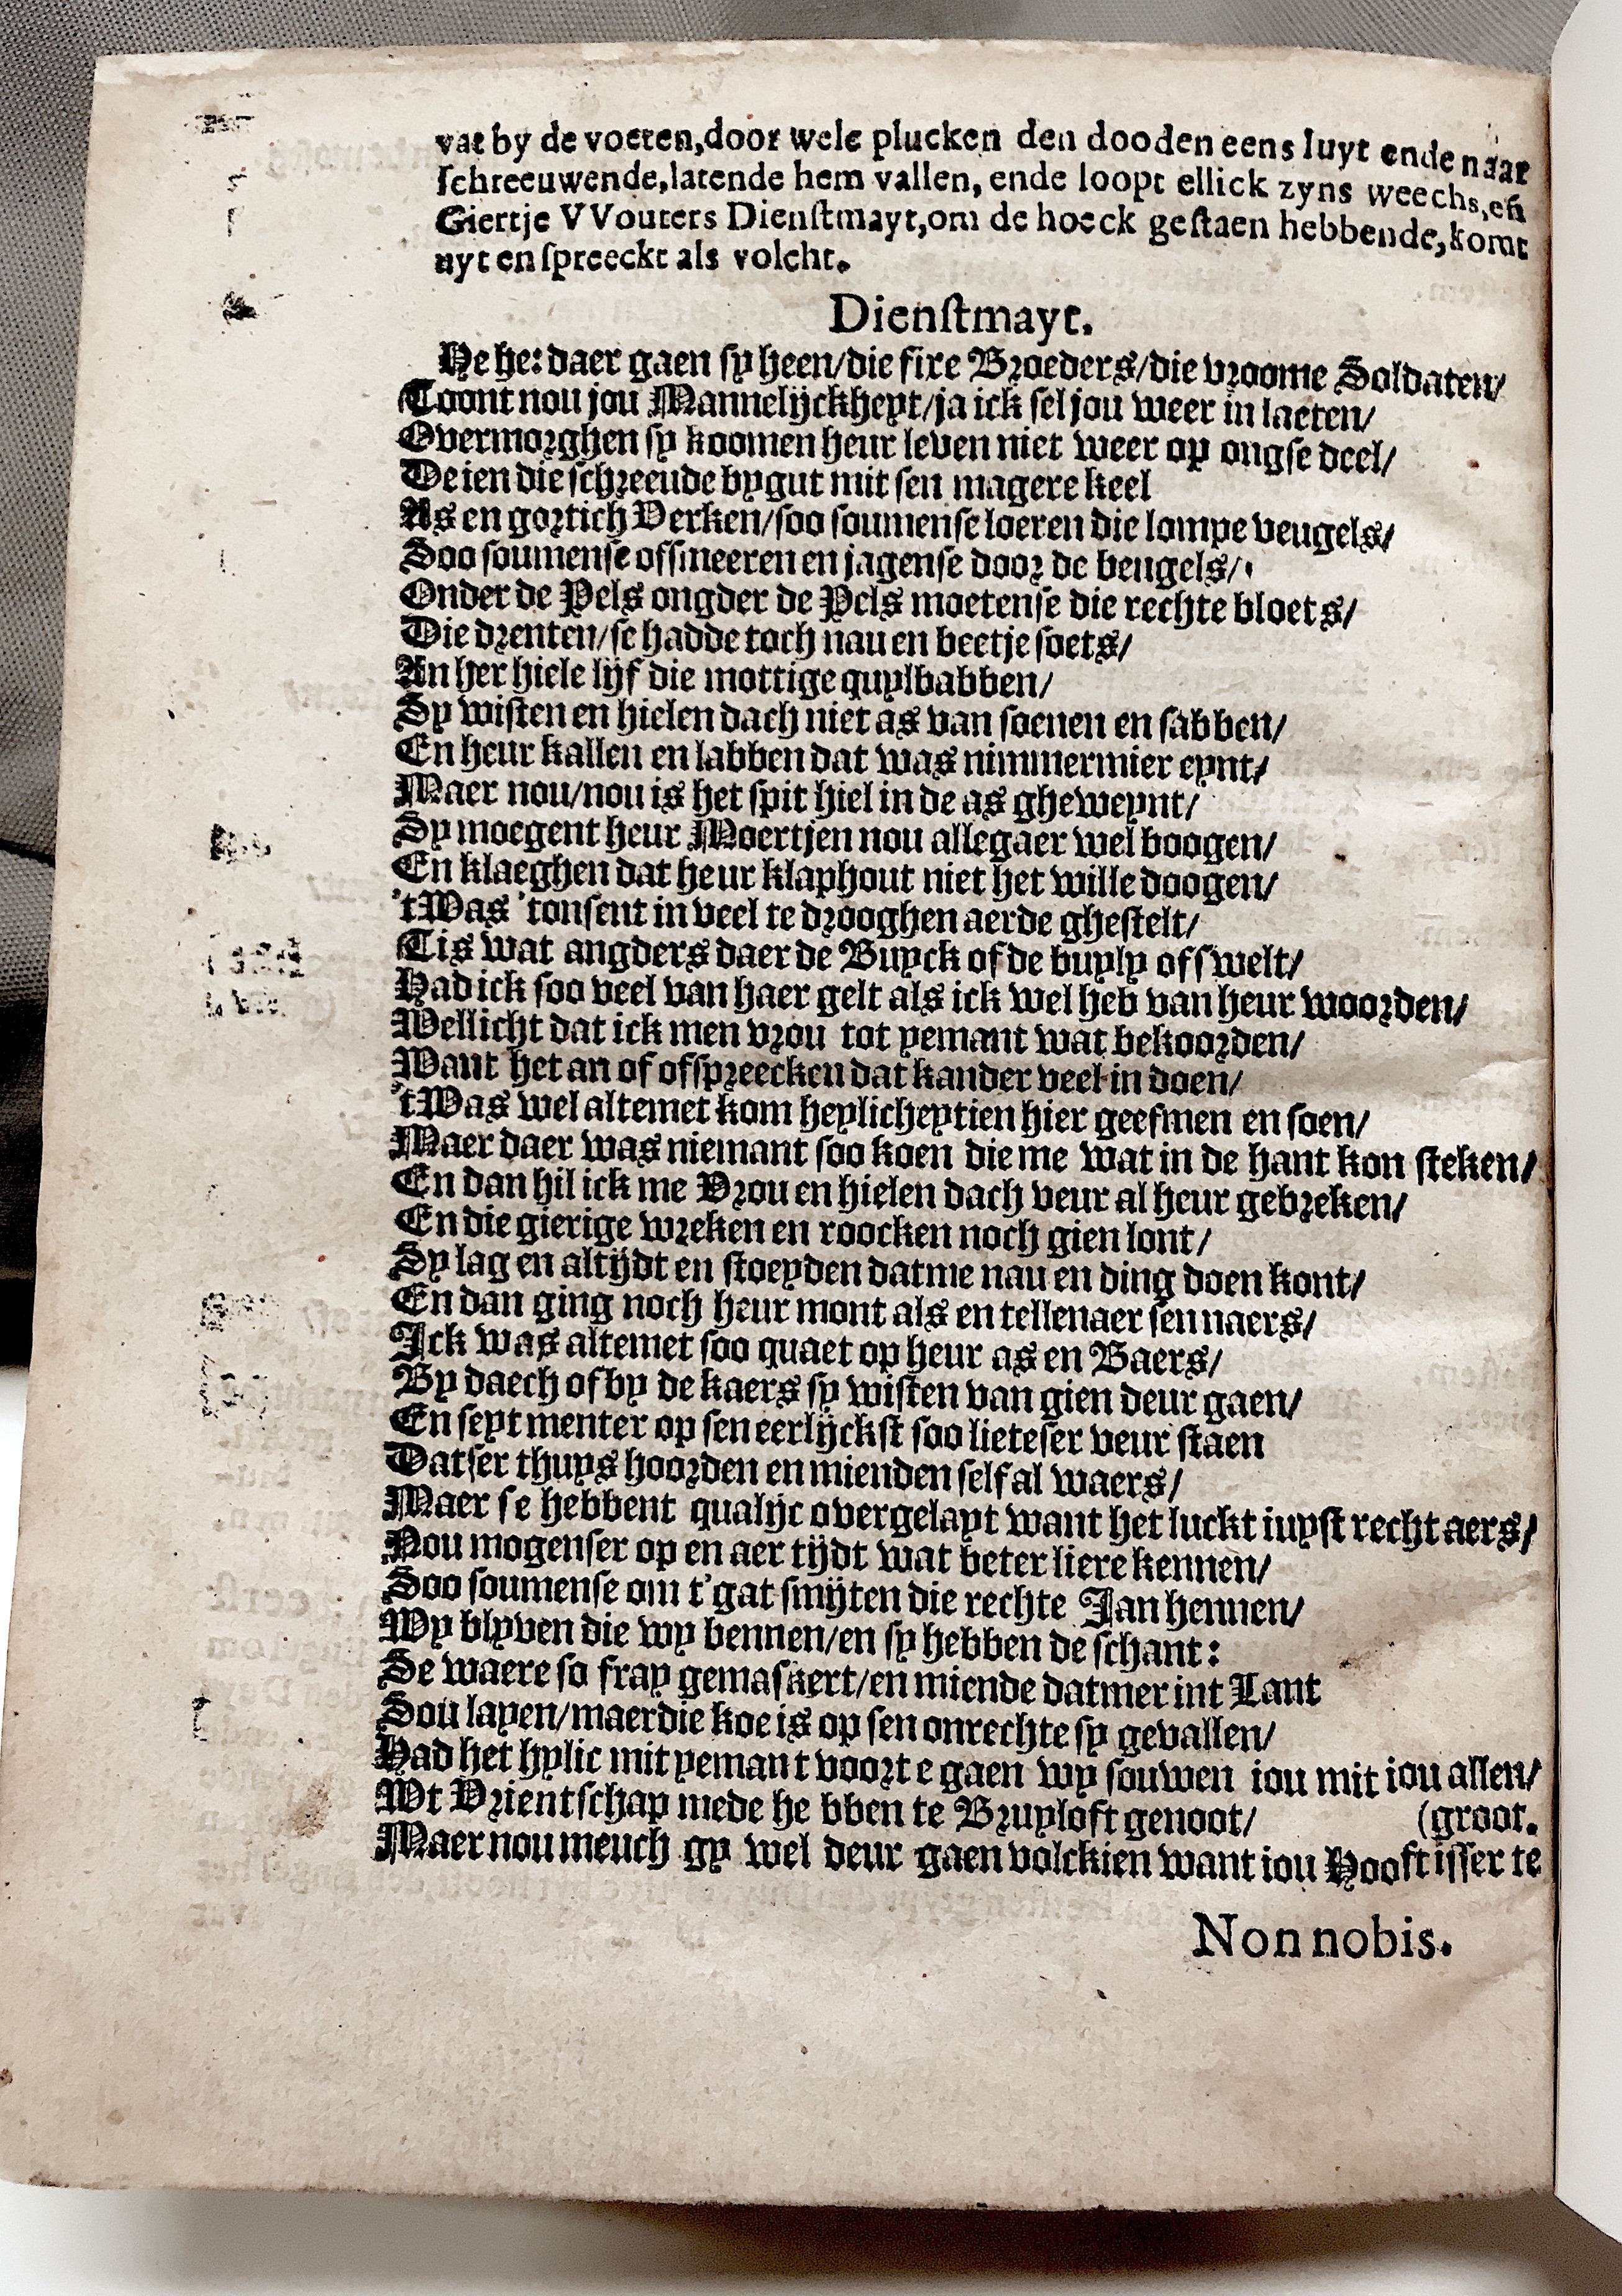 vat by de voeten,door welc plucken den dooden eens luyt ende naar
schreeuwende,latende hem vallen, ende loopt ellick zyns weechs,eñ
Giertje VVouters Dienstmayt,om de hoeck gestaen hebbende,komt
uyt en spreeckt als volcht.
Dienstmayt.
He he: daer gaen sy heen/die fixe Broeders/die vroome Soldaten/
Toont nou jou Mannelijckheyt/ja ick sel jou weer in laeten/
Overmorghen sy koomen heur leven niet weer op ongse deel/
De ien die schreeude bygut mit sen magere keel
As en gortich Verken/soo soumense loeren die lompe veugels/
Soo soumense offsmeeren en jagense door de beugels/
Onder de Pels ongder de Pels moetense die rechte bloets/
Die drenten/se hadde toch nau en beetje soets/
An her hiele lijf die mottige quylbabben/
Sy wisten en hielen dach niet as van soenen en sabben/
En heur kallen en labben dat was nimmermier eynt/
Maer nou/nou is het spit hiel in de as gheweynt/
Sy moegent heur Moertjen nou allegaer wel boogen/
En klaeghen dat heur klaphout niet het wille doogen/
'tWas 'tonsent in veel te drooghen aerde ghestelt/
Tis wat angders daer de Buyck of de buyly offwelt/
Had ick soo veel van haer gelt als ick wel heb van heur woorden/
Wellicht dat ick men vrou tot yemant wat bekoorden/
Want het an of ofspreecken dat kander veel in doen/
'tWas wel altemet kom heylicheytien hier geefmen en soen/
Maer daer was niemant soo koen die me wat in de hant kon steken/
En dan hil ick me Vrou en hielen dach veur al heur gebreken/
En die gierige wreken en roocken noch gien lont/
Sy lag en altijdt en stoeyden datme nau en ding doen kont/
En dan ging noch heur mont als en tellenaer sen naers/
Ick was altemet soo quaet op heur as en Baers/
By daech of by de kaers sy wisten van gien deur gaen/
En seyt menter op sen eerlijckst soo lieteser veur staen
Datser thuys hoorden en mienden self al waers/
Maer se hebbent qualijc overgelayt want het luckt iuyst recht aers/
Nou mogenser op en aer tijdt wat beter liere kennen/
Soo soumense om t'gat smijten die rechte Jan hennen/
Wy blyven die wy bennen/en sy hebben de schant:
Se waere so fray gemaskert/en miende datmer int Lant
Sou layen/maer die koe is op sen onrechte sy gevallen/
Had het hylic mit yemant voort e gaen wy souwen iou mit iou allen/
Wt Vrientschap mede he bben te Bruyloft genoot/ (groot.
Maer nou meuch gy wel deur gaen volckien want iou Hooft isser te
Non nobis.